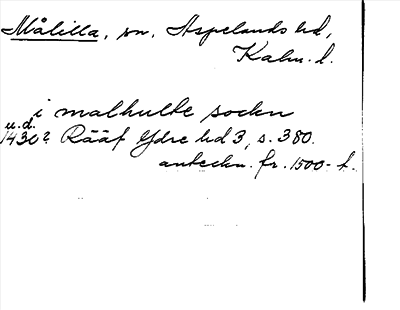 Målilla, sn, Aspelands hd,
Kalm. l.
i malhulte sockn
u.d.
1430? Rääf Ydre hd 3, s. 380.
anteckn. fr. 1500-t.